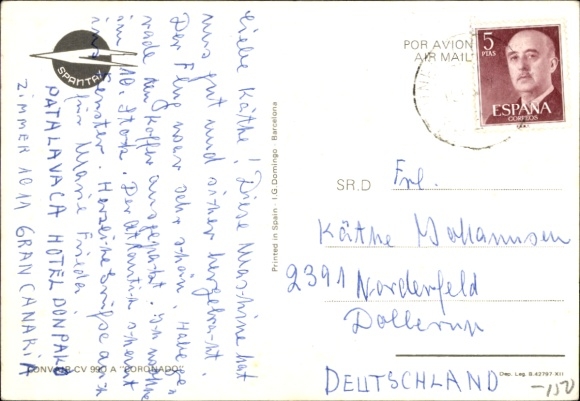 SPANTAX
Liebe Käthe! Diese Maschine hat
uns gut und sicher hergebracht.
Der Flug war sehr schön. Habe ge-
rade den Koffer ausgepackt. Ich wohne
im 10. Stock. Der Atlantik schaut
ins Fenster. Herzliche Grüße auch
für Marie Frieda
PATALAVACA HOTEL DONPACO
ZIMMER 1011 GRAN CANARIA
CONVAIR CV 990 A "CORONADO"
Printed in Spain - I.G. Domingo - Barcelona
POR AVION
AIR MAIL
5
PTAS
ESPAÑA
CORREOS
SR.D
Frl.
Käthe Johannsen
2391 Norderfeld
Dollerup
DEUTSCHLAND
Dep. Leg. B.42797-XII
-150